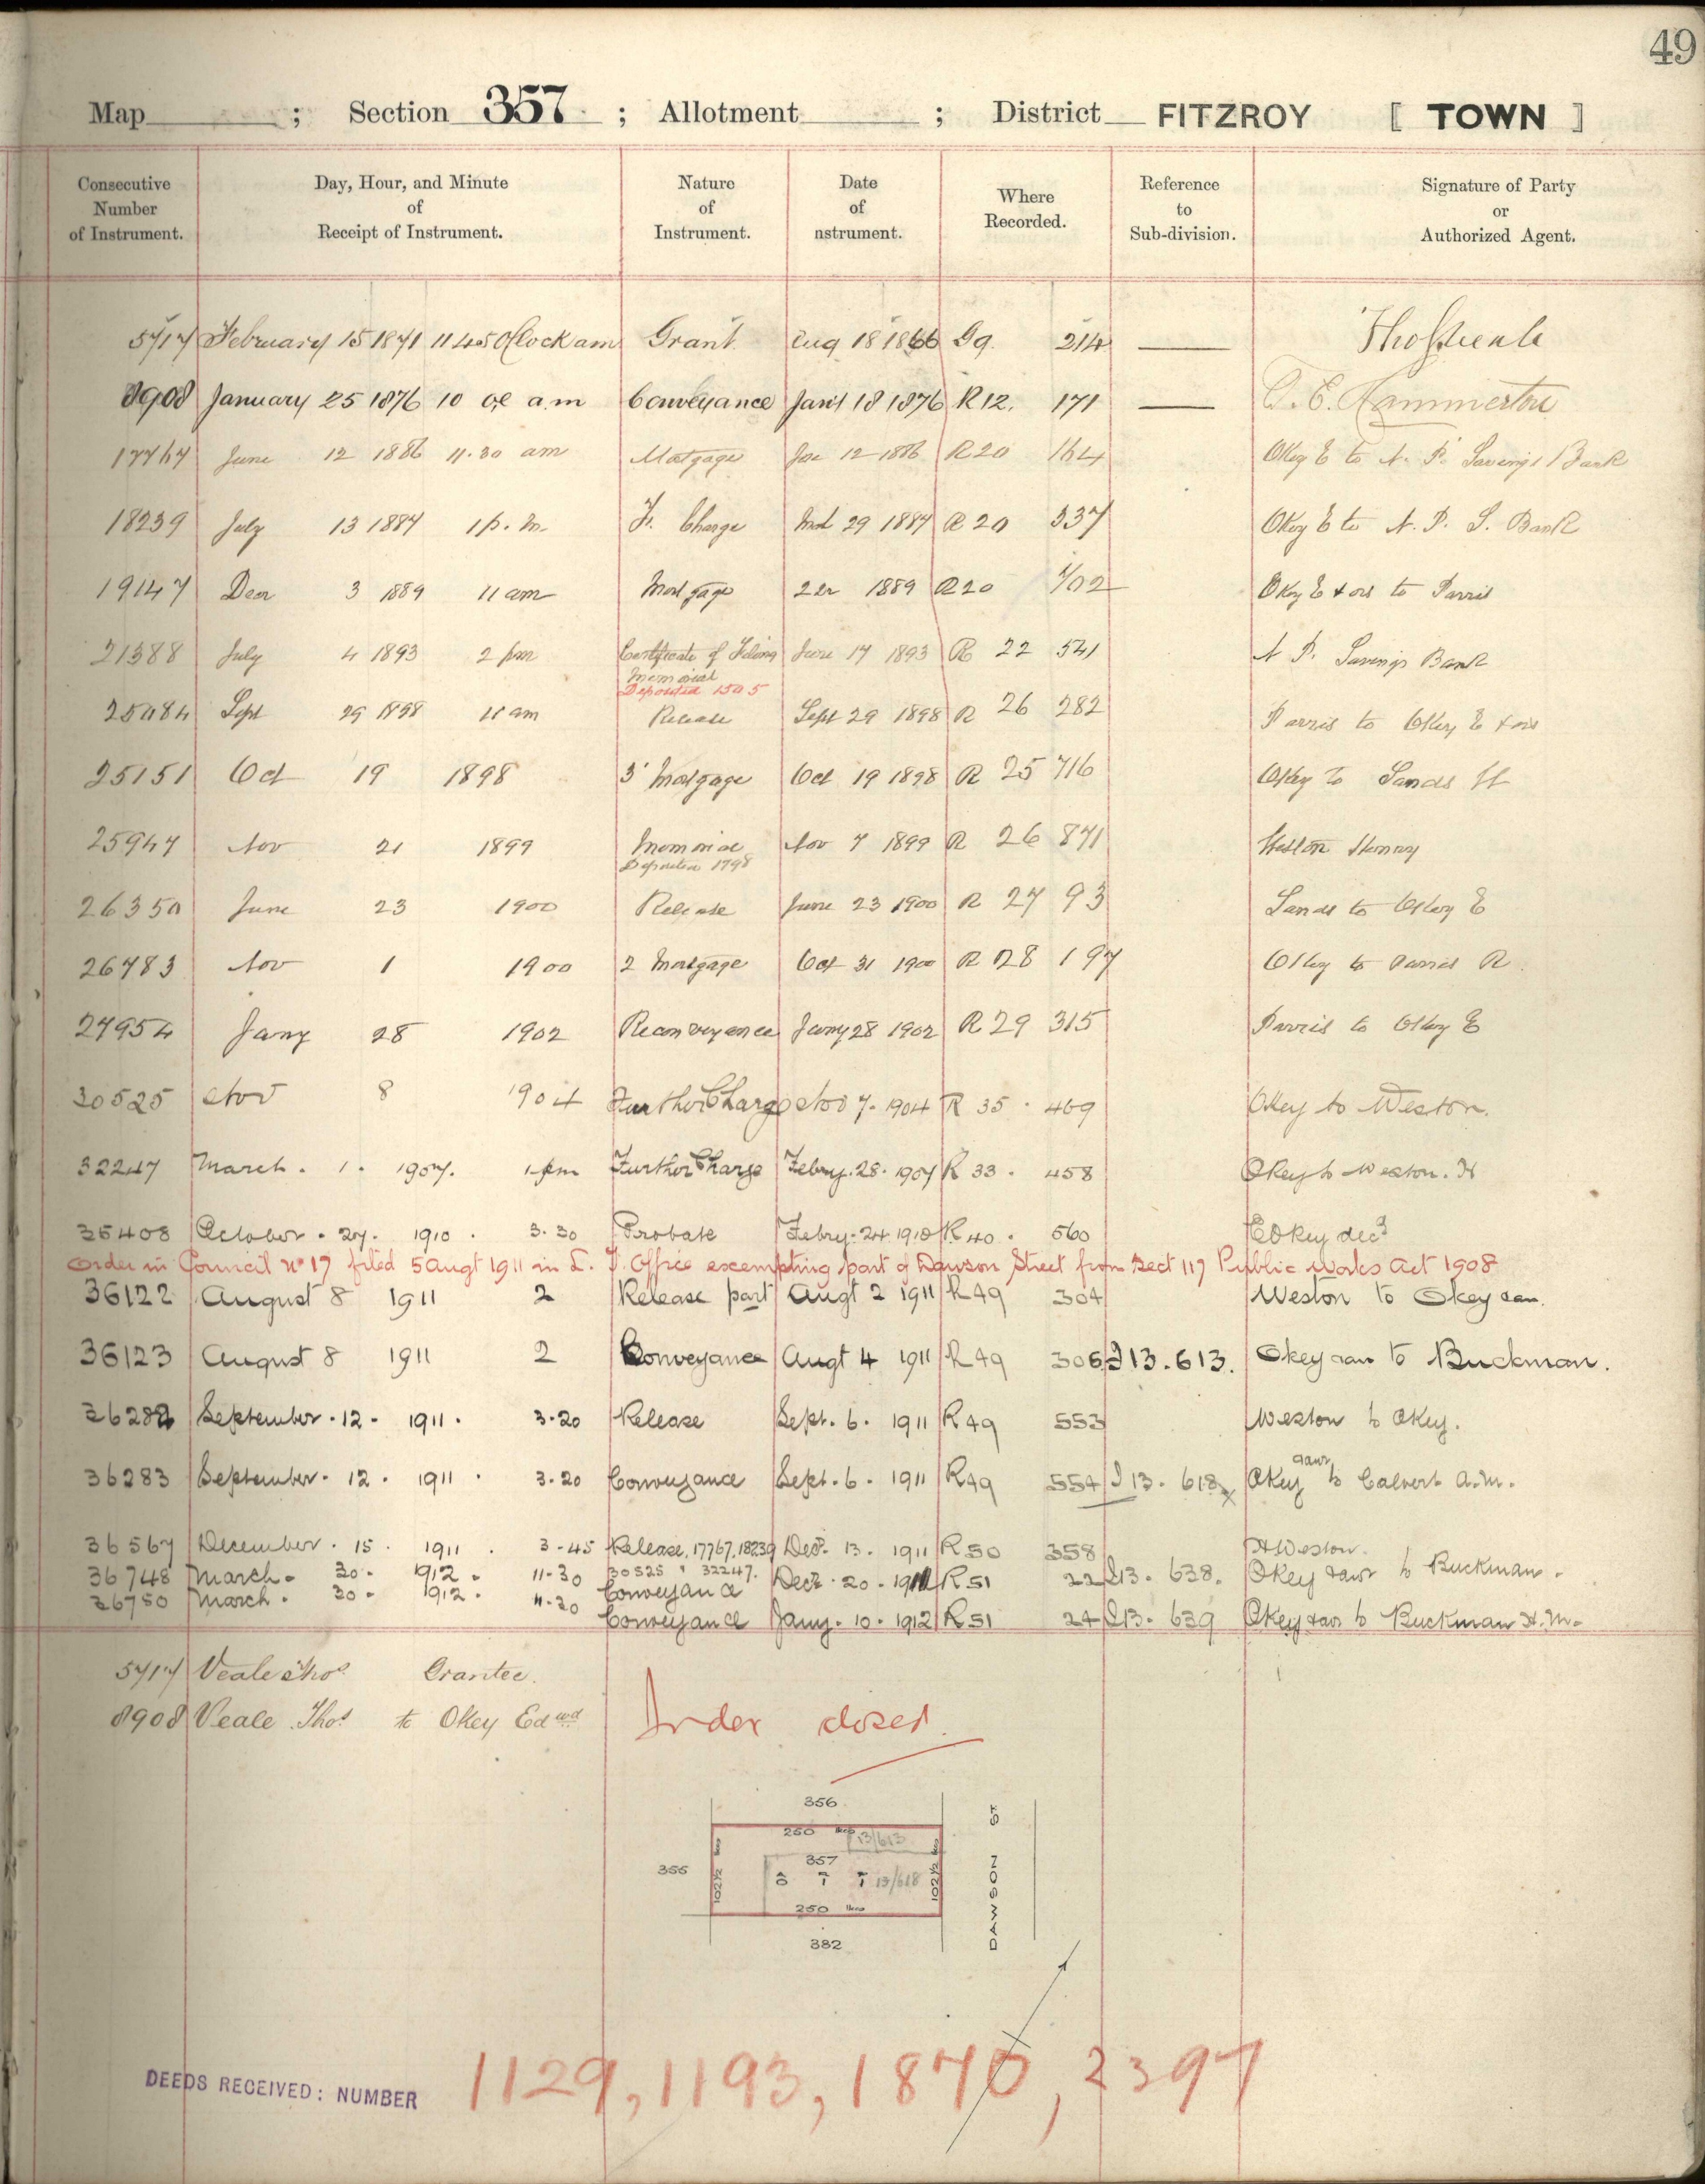 49
Map ; Section 357 ; Allotment ; District FITZROY [ TOWN ]
Consecutive Number of Instrument. Day, Hour, and Minute of Receipt of Instrument. Nature of Instrument. Date of nstrument. Where Recorded. Reference to Sub-division. Signature of Party or Authorized Agent.
5717 February 15 1871 11 45 O'Clock am Grant Aug 18 1866 Gg. 214 — Thos Veale
8908 January 25 1876 10 a.m Conveyance Jan'y 18 1876 R12. 171 — Hammerton
17767 June 12 1886 11.30 am Mortgage June 12 1886 R20 164 Okey E to N. P. Savings Bank
18239 July 13 1887 1 p.m. Fr. Charge 29 1887 R 20 337 Okey E to N. P. S. Bank
19147 Decr 3 1889 11 am Mortgage 2 Dr 1889 R20 702 Okey E & ors to Parris
21388 July 4 1893 2 pm Certificate of June 17 1893 R 22 541 N P. Savings Bank
Memorial
Deposited 1505
25084 Sept 29 1898 11 am Release Sept 29 1898 R 26 282 Parris to Okey E & ors
25151 Oct 19 1898 3' Mortgage Oct 19 1898 R 25 716 Okey to Sands
25947 Nov 21 1899 Memorial Nov 7 1899 R 26 871 Weston Henry
Deposited 1798
26350 June 23 1900 Release June 23 1900 R 27 93 Sands to Okey E
26783 Nov 1 1900 2 Mortgage Oct 31 1900 R 28 197 Okey to Parris R
27954 Jany 28 1902 Reconveyance Jany 28 1902 R 29 315 Parris to Okey E
30525 Nov 8 1904 Further Charge Nov 7. 1904 R 35. 469 Okey to Weston.
32247 March. 1. 1907. 1 pm Further Charge Febry. 28. 1907 R 33. 458 Okey to Weston. H
35408 October. 27. 1910. 3.30 Probate Febry. 24 1910 R 40. 560 E Okey decd
Order in Council No 17 filed 5 Augt 1911 in L. T. Office exempting part of Dawson Street from Sect 117 Public Works Act 1908
36122 August 8 1911 2 Release part Augt 2 1911 R49 304 Weston to Okey &an.
36123 August 8 1911 2 Conveyance Augt 4 1911 R49 306 I 13. 613. Okey &an to Buckman.
36282 September. 12. 1911. 3.20 Release Sept. 6. 1911 R49 553 Weston to Okey.
36283 September. 12. 1911. 3.20 Conveyance Sept. 6. 1911 R49 554 I 13. 618 Okey &anr to Calvert A.M.
36567 December. 15. 1911. 3-45 Release, 17767, 18239 Decr. 13. 1911 R50 358 H Weston.
30525 " 32247.
36748 March. 30. 1912. 11-30 Conveyance Decr. 20. 1911 R51 22 I13. 638. Okey &anr to Buckman.
36750 March. 30. 1912. 11.30 Conveyance Jany. 10. 1912 R51 24 I13. 639 Okey &anr to Buckman H.M.
5717 Veale Thos. Grantee.
8908 Veale Thos. to Okey Edwd
Index closed.
356
250 lks
13/613
355
102½ lks
357
13/618
102½ lks
250 lks
382
DAWSON ST
DEEDS RECEIVED: NUMBER 1129, 1193, 1870, 2397